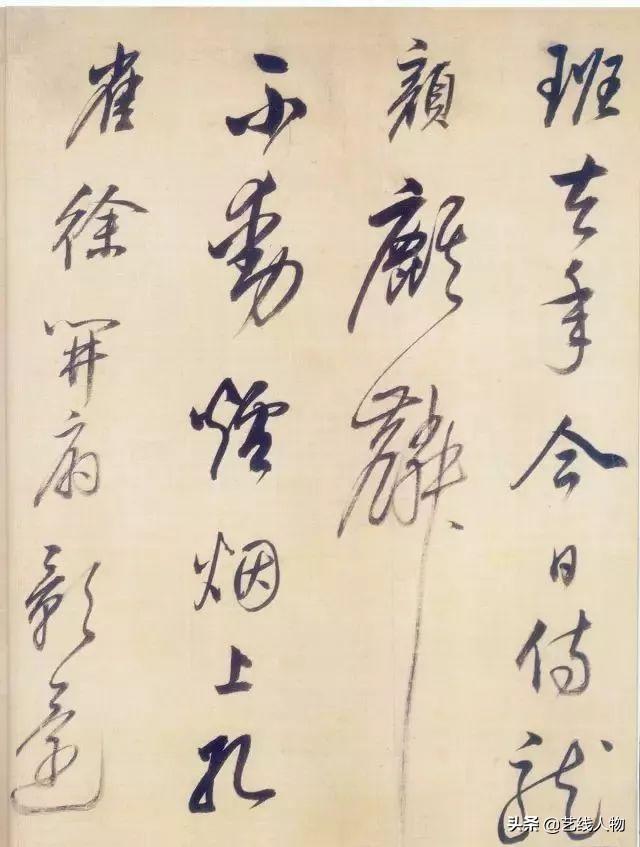 班去年今日侍龍
顏麒麟
不動爐烟上孔
雀徐開扇影還
头条 @艺线人物